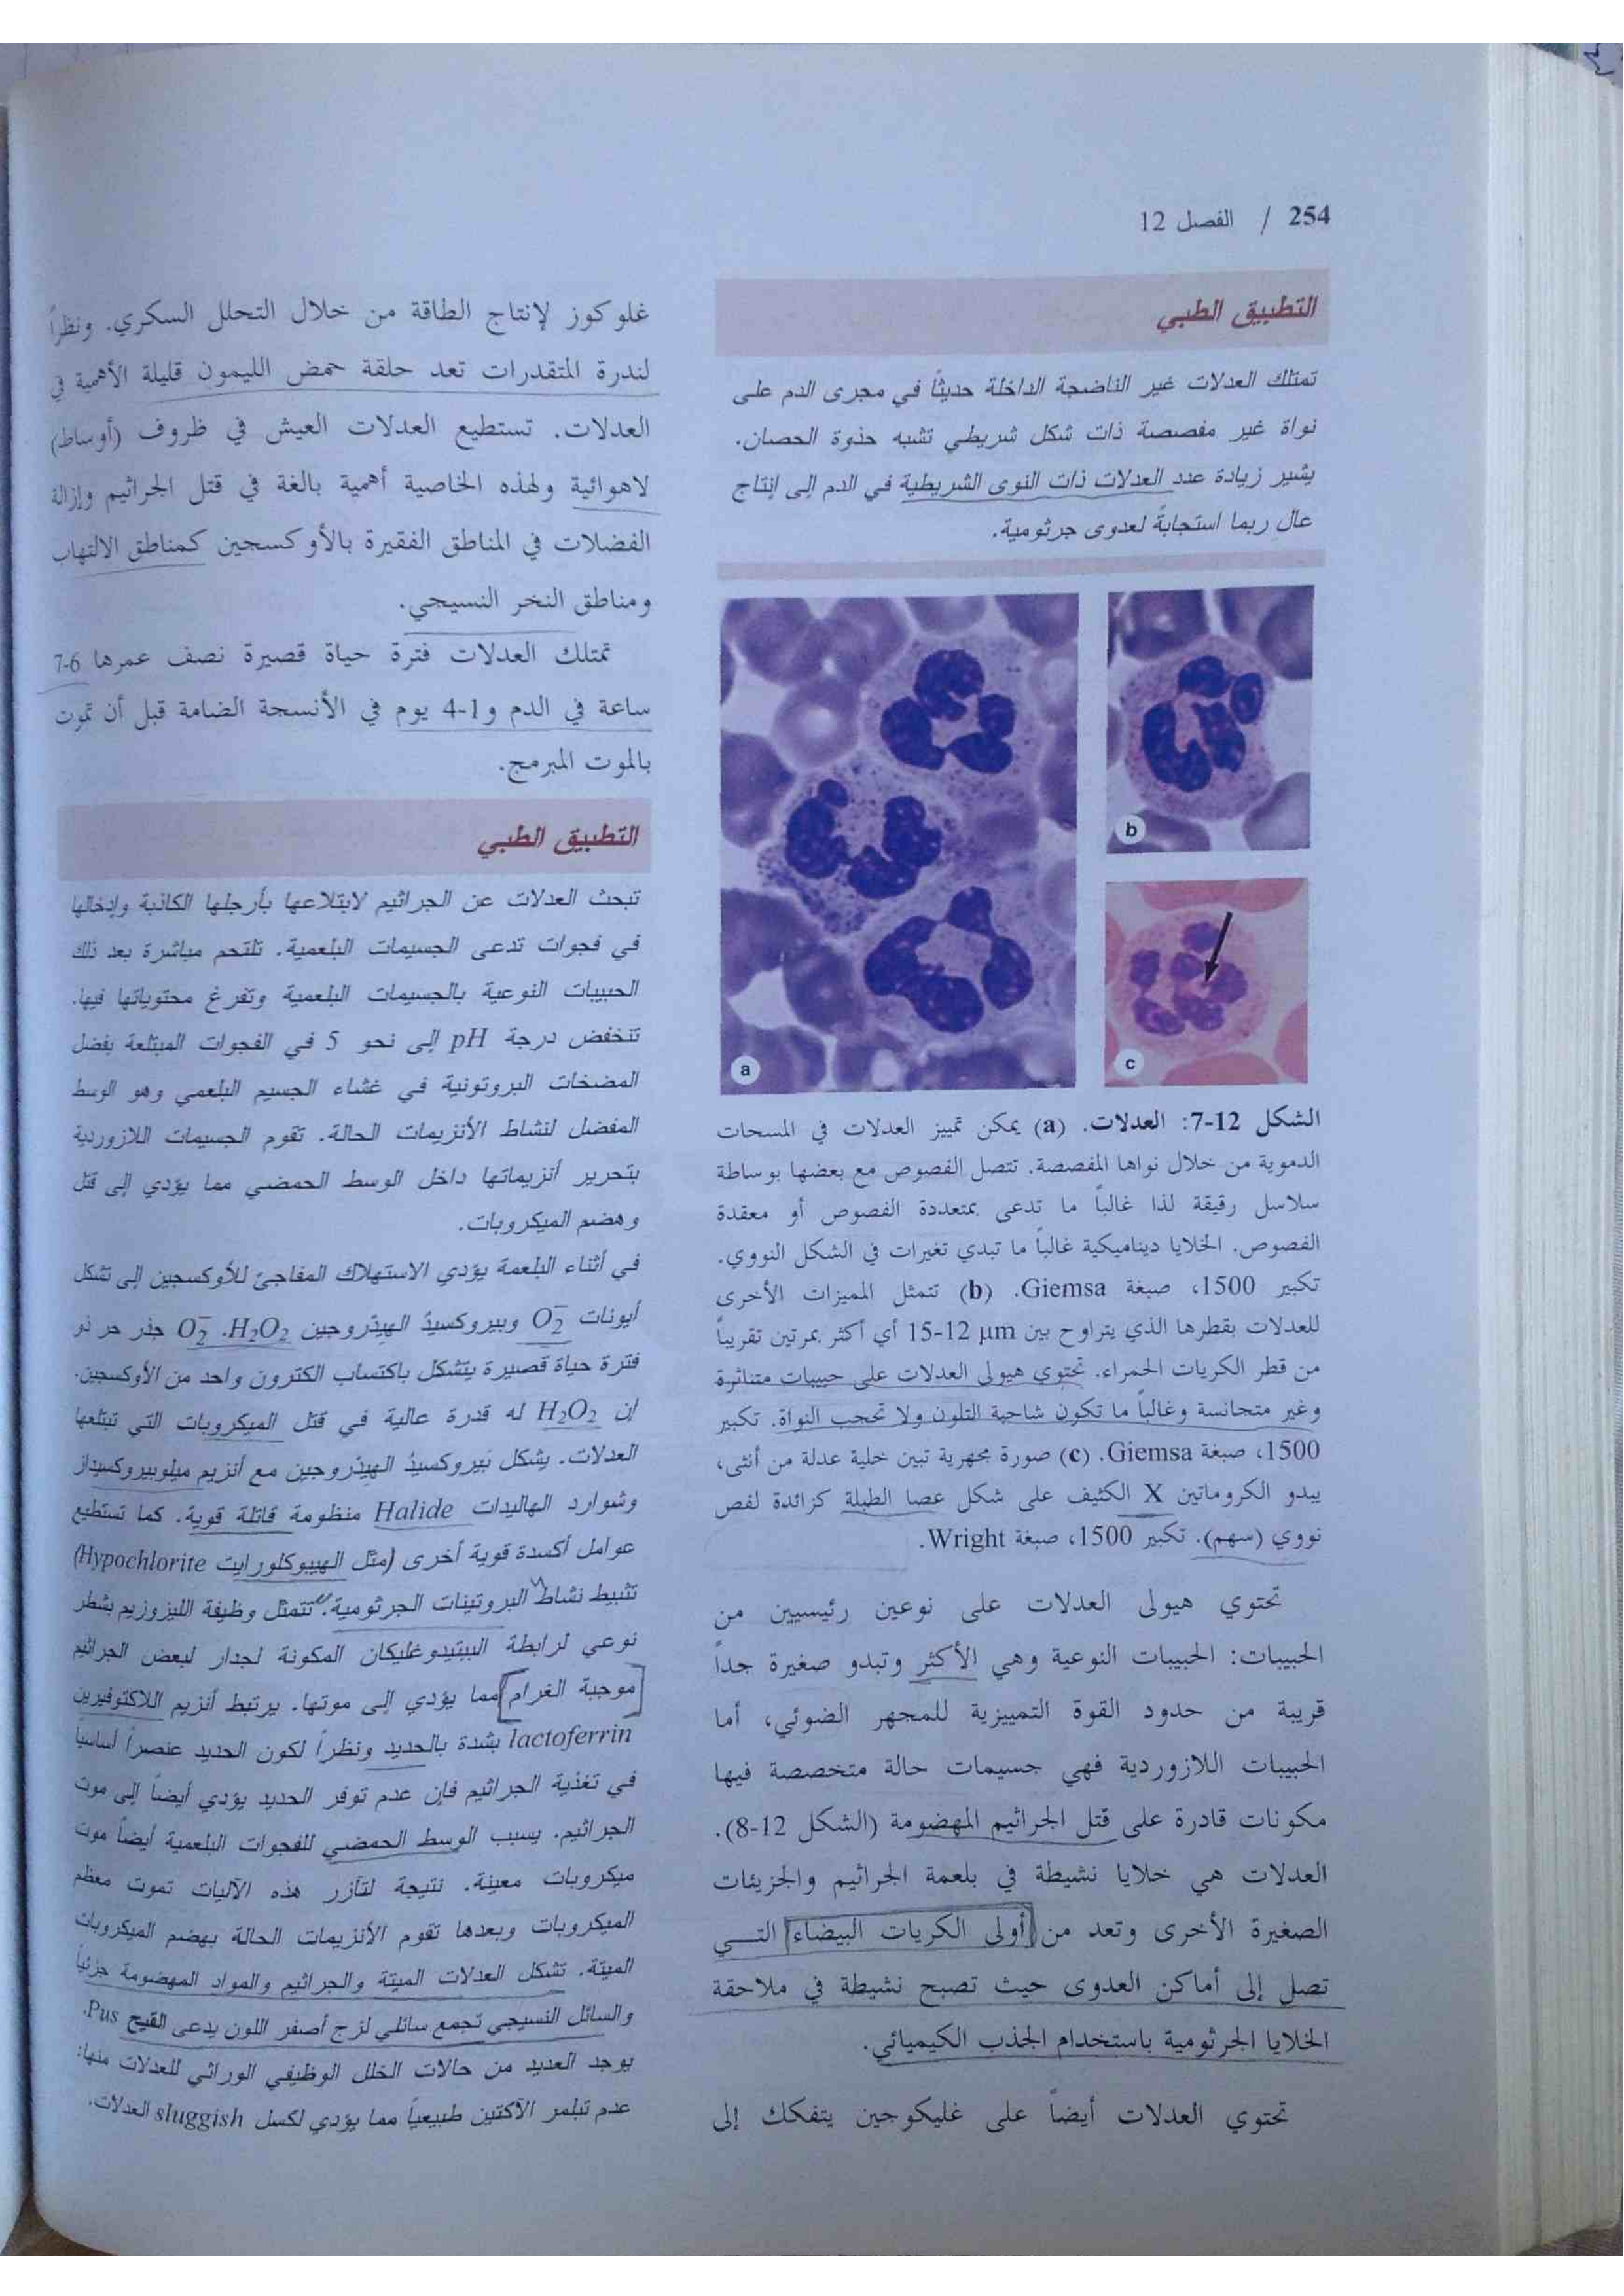 254 / الفصل 12
التطبيق الطبي
تمتلك العدلات غير الناضجة الداخلة حديثاً في مجرى الدم على
نواة غير مفصصة ذات شكل شريطي تشبه حذوة الحصان.
يشير زيادة عدد العدلات ذات النوى الشريطية في الدم إلى إنتاج
عال ربما استجابةً لعدوى جرثومية.
a
b
c
الشكل 12-7: العدلات. (a) يمكن تمييز العدلات في المسحات
الدموية من خلال نواها المفصصة. تتصل الفصوص مع بعضها بوساطة
سلاسل رقيقة لذا غالباً ما تدعى بمتعددة الفصوص أو معقدة
الفصوص. الخلايا ديناميكية غالباً ما تبدي تغيرات في الشكل النووي.
تكبير 1500، صبغة Giemsa. (b) تتمثل المميزات الأخرى
للعدلات بقطرها الذي يتراوح بين 12-15 μm أي أكثر بمرتين تقريباً
من قطر الكريات الحمراء. تحتوي هيولى العدلات على حبيبات متناثرة
وغير متجانسة وغالباً ما تكون شاحبة التلون ولا تحجب النواة. تكبير
1500، صبغة Giemsa. (c) صورة مجهرية تبين خلية عدلة من أنثى،
يبدو الكروماتين X الكثيف على شكل عصا الطبلة كزائدة لفص
نووي (سهم). تكبير 1500، صبغة Wright.
تحتوي هيولى العدلات على نوعين رئيسيين من
الحبيبات: الحبيبات النوعية وهي الأكثر وتبدو صغيرة جداً
قريبة من حدود القوة التمييزية للمجهر الضوئي، أما
الحبيبات اللازوردية فهي جسيمات حالة متخصصة فيها
مكونات قادرة على قتل الجراثيم المهضومة (الشكل 12-8).
العدلات هي خلايا نشيطة في بلعمة الجراثيم والجزيئات
الصغيرة الأخرى وتعد من أولى الكريات البيضاء التـــي
تصل إلى أماكن العدوى حيث تصبح نشيطة في ملاحقة
الخلايا الجرثومية باستخدام الجذب الكيميائي.
تحتوي العدلات أيضاً على غليكوجين يتفكك إلى
غلوكوز لإنتاج الطاقة من خلال التحلل السكري. ونظراً
لندرة المتقدرات تعد حلقة حمض الليمون قليلة الأهمية في
العدلات. تستطيع العدلات العيش في ظروف (أوساط)
لاهوائية ولهذه الخاصية أهمية بالغة في قتل الجراثيم وإزالة
الفضلات في المناطق الفقيرة بالأوكسجين كمناطق الالتهاب
ومناطق النخر النسيجي.
تمتلك العدلات فترة حياة قصيرة نصف عمرها 6-7
ساعة في الدم و1-4 يوم في الأنسجة الضامة قبل أن تموت
بالموت المبرمج.
التطبيق الطبي
تبحث العدلات عن الجراثيم لابتلاعها بأرجلها الكاذبة وإدخالها
في فجوات تدعى الجسيمات البلعمية. تلتحم مباشرة بعد ذلك
الحبيبات النوعية بالجسيمات البلعمية وتفرغ محتوياتها فيها.
تنخفض درجة pH إلى نحو 5 في الفجوات المبتلعة بفضل
المضخات البروتونية في غشاء الجسيم البلعمي وهو الوسط
المفضل لنشاط الأنزيمات الحالة. تقوم الجسيمات اللازوردية
بتحرير أنزيماتها داخل الوسط الحمضي مما يؤدي إلى قتل
وهضم الميكروبات.
في أثناء البلعمة يؤدي الاستهلاك المفاجئ للأوكسجين إلى تشكل
أيونات O₂⁻ وبيروكسيد الهيدروجين H₂O₂. O₂⁻ جذر حر ذو
فترة حياة قصيرة يتشكل باكتساب الكترون واحد من الأوكسجين.
إن H₂O₂ له قدرة عالية في قتل الميكروبات التي تبتلعها
العدلات. يشكل بيروكسيد الهيدروجين مع أنزيم ميلوبيروكسيداز
وشوارد الهاليدات Halide منظومة قاتلة قوية. كما تستطيع
عوامل أكسدة قوية أخرى (مثل الهيبوكلورايت Hypochlorite)
تثبيط نشاط البروتينات الجرثومية. تتمثل وظيفة الليزوزيم بشطر
نوعي لرابطة الببتيدوغليكان المكونة لجدار لبعض الجراثيم
موجبة الغرام مما يؤدي إلى موتها. يرتبط أنزيم اللاكتوفيرين
lactoferrin بشدة بالحديد ونظراً لكون الحديد عنصراً أساسياً
في تغذية الجراثيم فإن عدم توفر الحديد يؤدي أيضاً إلى موت
الجراثيم. يسبب الوسط الحمضي للفجوات البلعمية أيضاً موت
ميكروبات معينة. نتيجة لتآزر هذه الآليات تموت معظم
الميكروبات وبعدها تقوم الأنزيمات الحالة بهضم الميكروبات
الميتة. تشكل العدلات الميتة والجراثيم والمواد المهضومة جزئياً
والسائل النسيجي تجمع سائلي لزج أصفر اللون يدعى القيح Pus.
يوجد العديد من حالات الخلل الوظيفي الوراثي للعدلات منها:
عدم تبلمر الأكتين طبيعياً مما يؤدي لكسل sluggish العدلات.